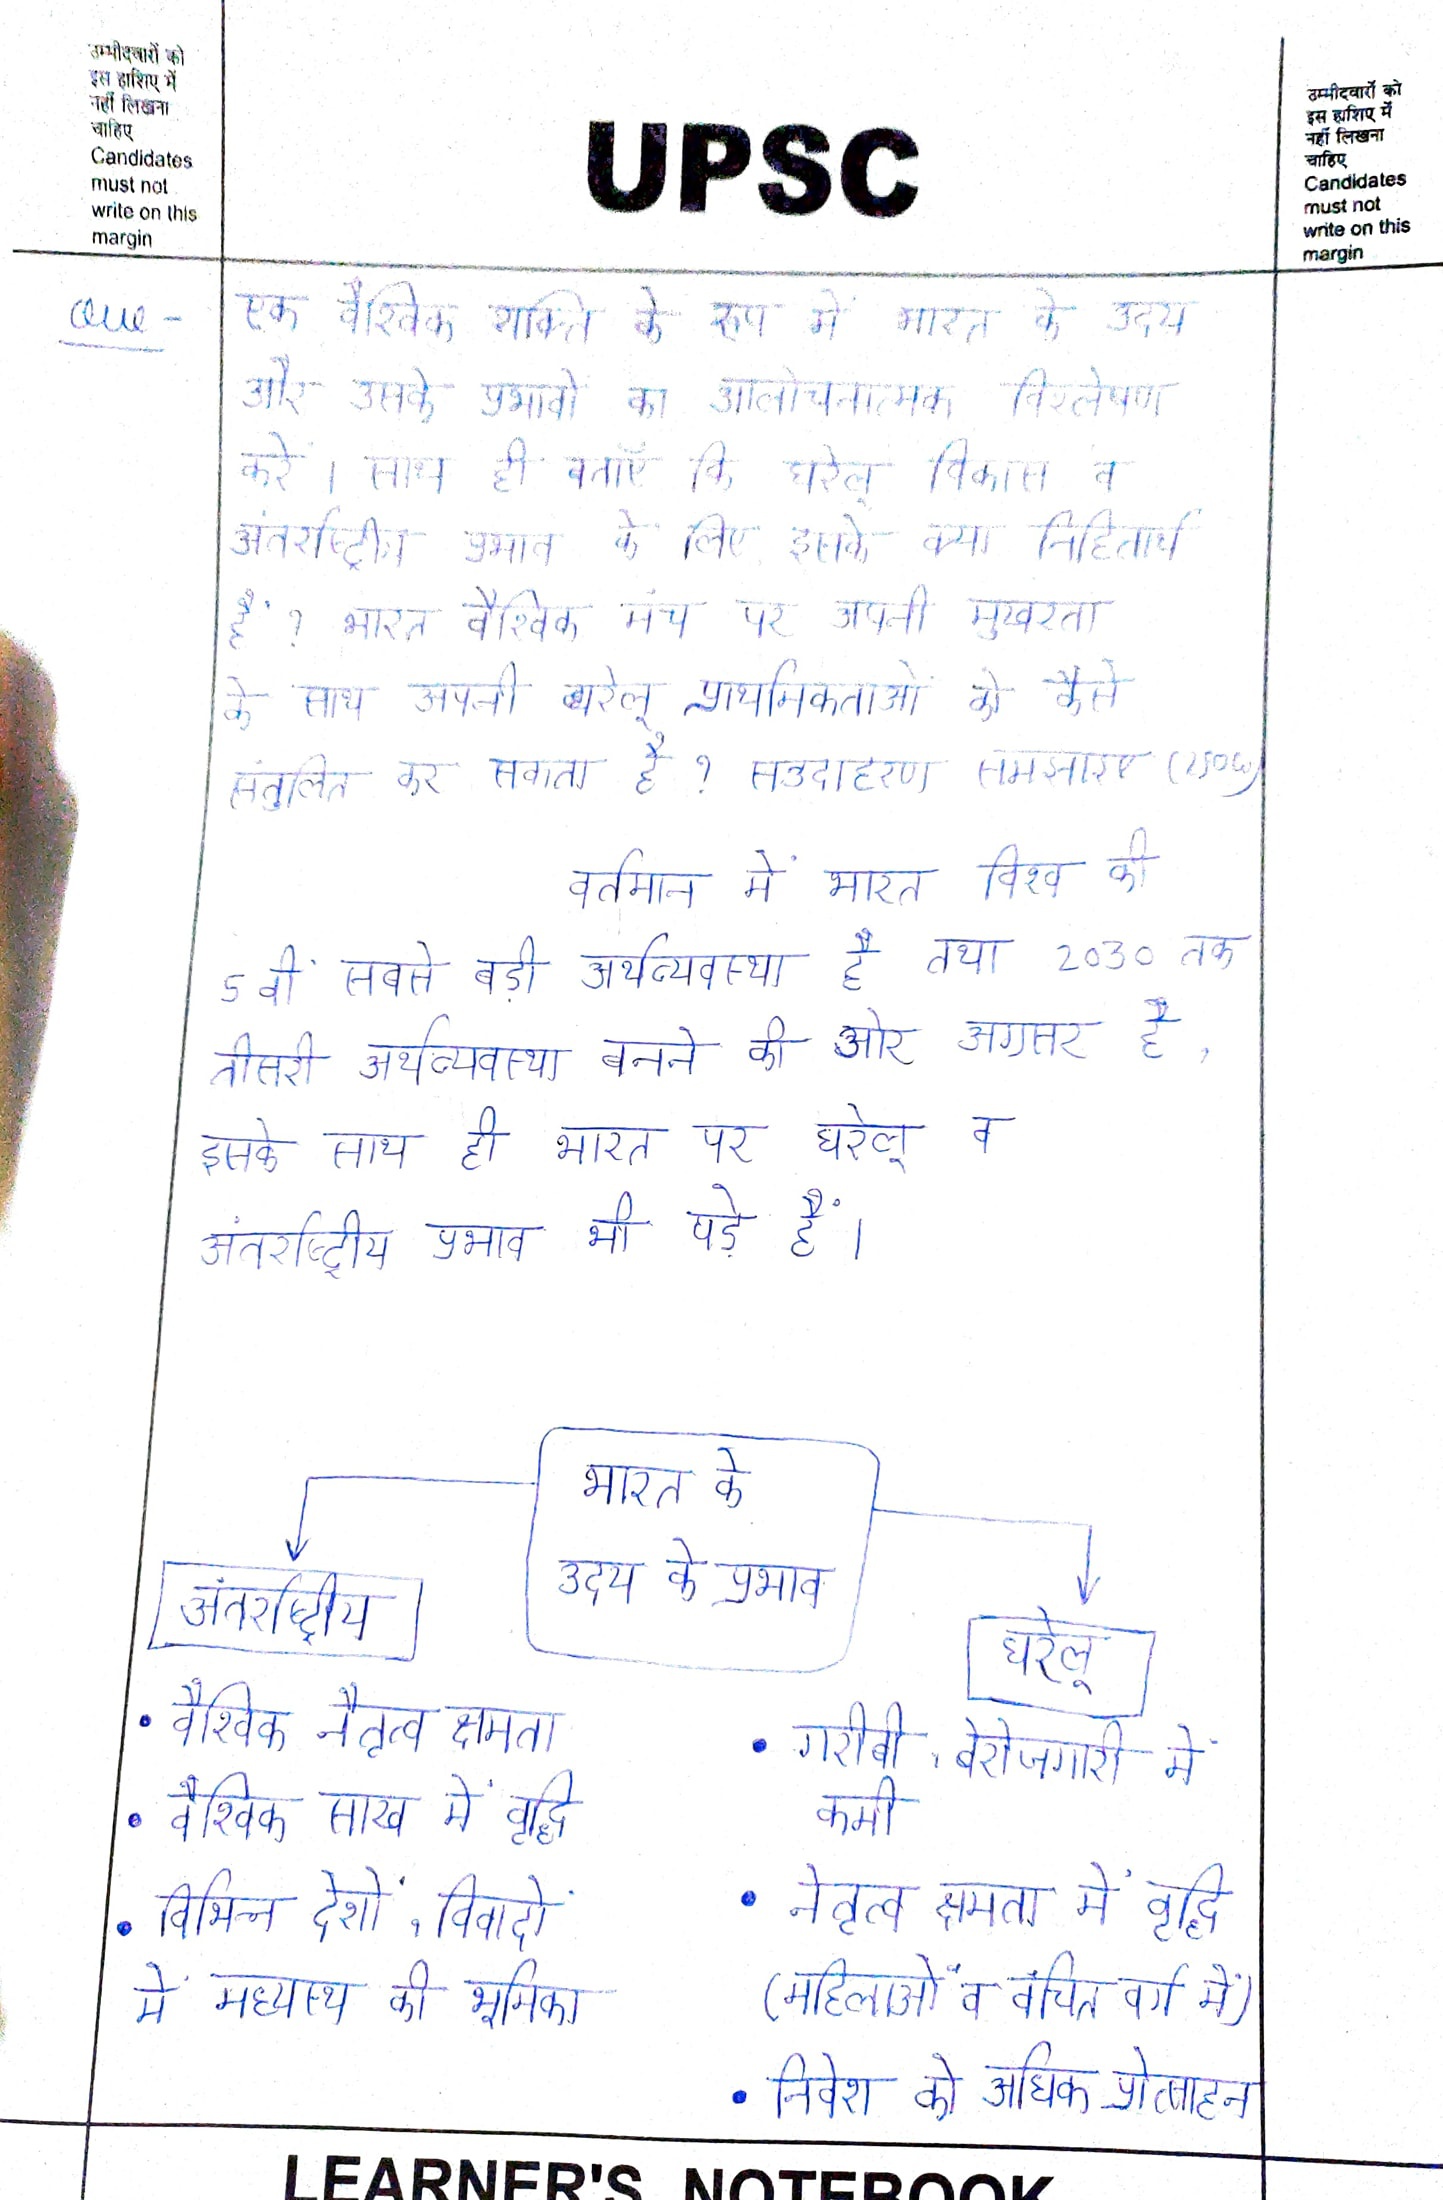 उम्मीदवारों को
इस हाशिए में
नहीं लिखना
चाहिए
Candidates
must not
write on this
margin
UPSC
उम्मीदवारों को
इस हाशिए में
नहीं लिखना
चाहिए
Candidates
must not
write on this
margin
Que -
एक वैश्विक शक्ति के रूप में भारत के उदय
और उसके प्रभावों का आलोचनात्मक विश्लेषण
करें । साथ ही बताएँ कि घरेलू विकास व
अंतर्राष्ट्रीय प्रभाव के लिए इसके क्या निहितार्थ
हैं ? भारत वैश्विक मंच पर अपनी मुखरता
के साथ अपनी घरेलू प्राथमिकताओं को कैसे
संतुलित कर सकता है ? सउदाहरण समझाइए
वर्तमान में भारत विश्व की
5 वीं सबसे बड़ी अर्थव्यवस्था है तथा 2030 तक
तीसरी अर्थव्यवस्था बनने की ओर अग्रसर है ,
इसके साथ ही भारत पर घरेलू व
अंतर्राष्ट्रीय प्रभाव भी पड़े हैं ।
भारत के
उदय के प्रभाव
अंतर्राष्ट्रीय
• वैश्विक नैतृत्व क्षमता
• वैश्विक साख में वृद्धि
• विभिन्न देशों , विवादों
में मध्यस्थ की भूमिका
घरेलू
• गरीबी , बेरोजगारी में
कमी
• नेतृत्व क्षमता में वृद्धि
(महिलाओं व वंचित वर्ग में)
• निवेश को अधिक प्रोत्साहन
LEARNER'S NOTEBOOK